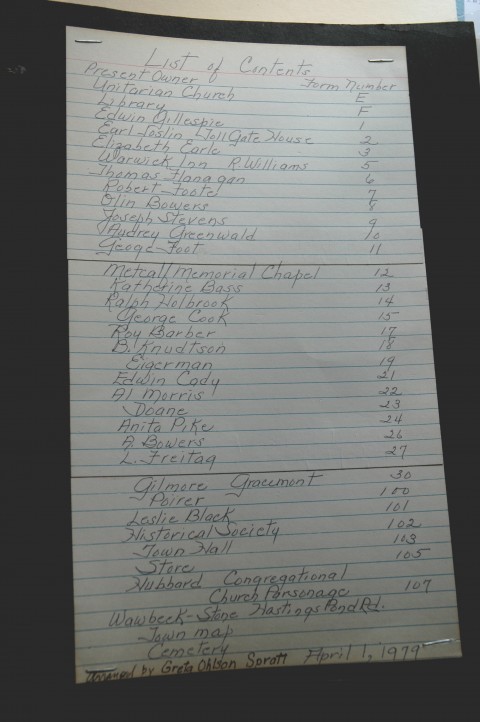 List of Contents
Present Owner Form Number
Unitarian Church E
Library F
Edwin Gillespie 1
Earl Joslin Toll Gate House 2
Elizabeth Earle 3
Warwick Inn R. Williams 5
Thomas Flanagan 6
Robert Foote 7
Olin Bowers 8
Joseph Stevens 9
Audrey Greenwald 10
George Foot 11
Metcalf Memorial Chapel 12
Katherine Bass 13
Ralph Holbrook 14
George Cook 15
Roy Barber 17
B. Knudtson 18
Eigerman 19
Edwin Cady 21
Al Morris 22
Doane 23
Anita Pike 24
A. Bowers 26
L. Freitag 27
Gilmore Gracemont 30
Poirer 100
Leslie Black 101
Historical Society 102
Town Hall 103
Store 105
Hubbard Congregational
Church Parsonage 107
Wawbeek-Stone Hastings Pond Rd.
Town map
Cemetery
Arranged by Greta Ohlson Sprott April 1, 1979